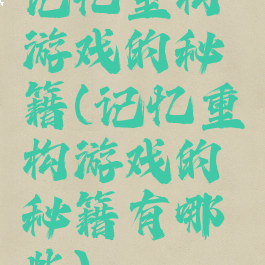 记忆重构
游戏的秘
籍(记忆重
构游戏的
秘籍有哪
些)